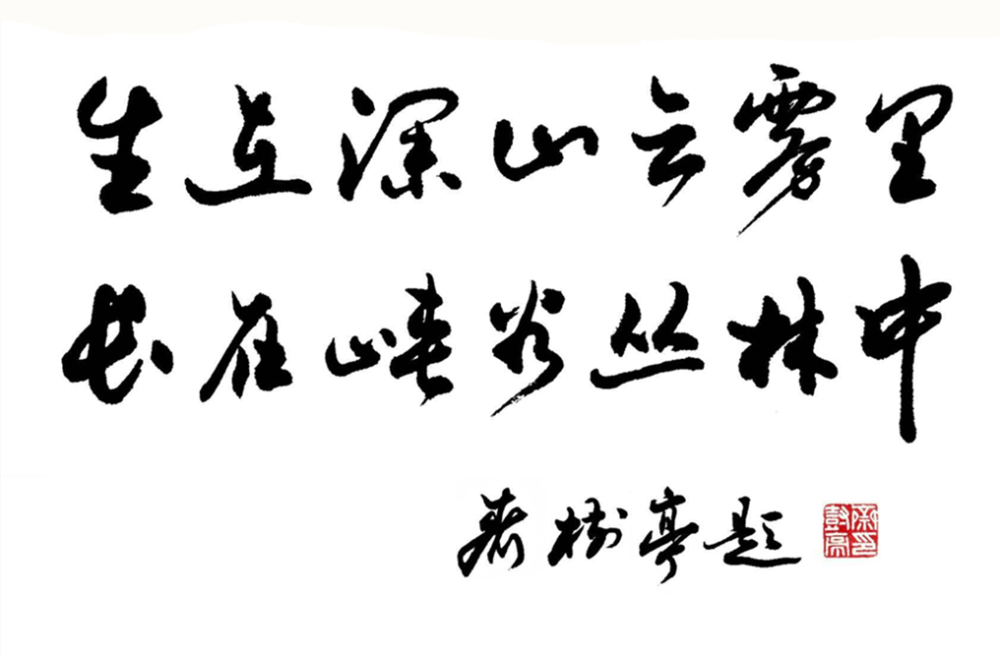 生在深山云雾里
长在峡谷丛林中
树亭题